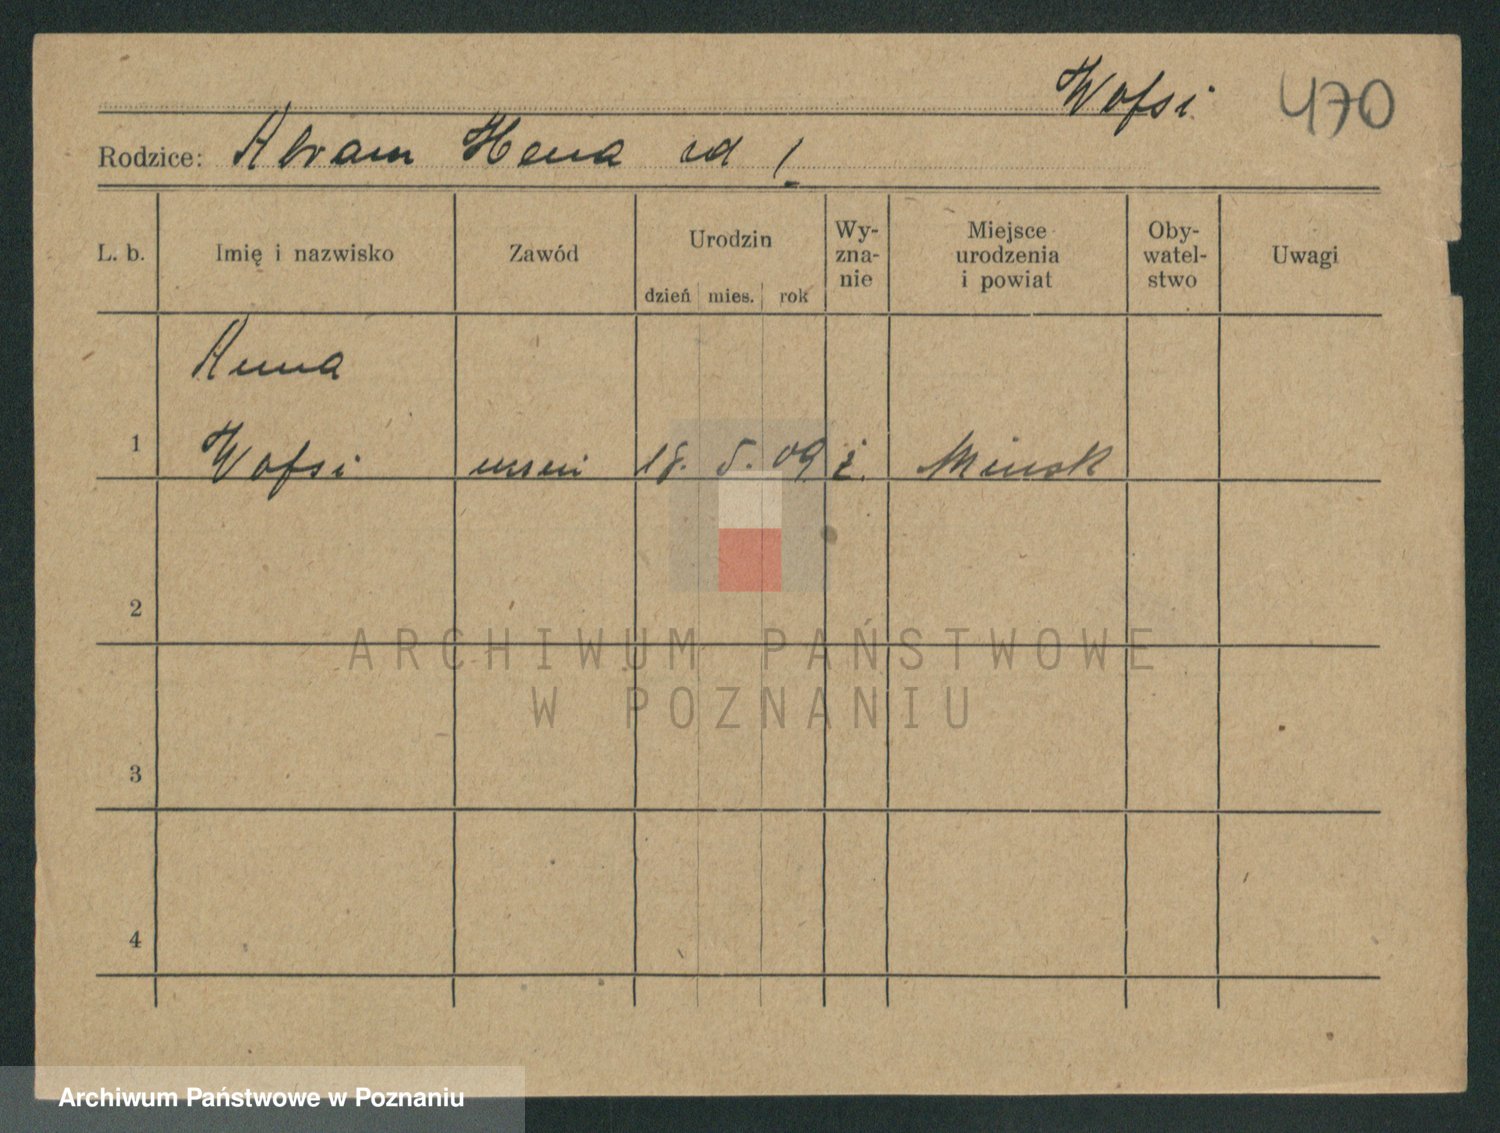 Wofsi 470
Rodzice: Abram Hena
L. b. Imię i nazwisko Zawód Urodzin Wy- Miejsce Oby- Uwagi
zna- urodzenia watel-
dzień mies. rok nie i powiat stwo
Anna
1 Wofsi 18. 5. 09 ż. Mińsk
2
3
4
ARCHIWUM PAŃSTWOWE
W POZNANIU
Archiwum Państwowe w Poznaniu